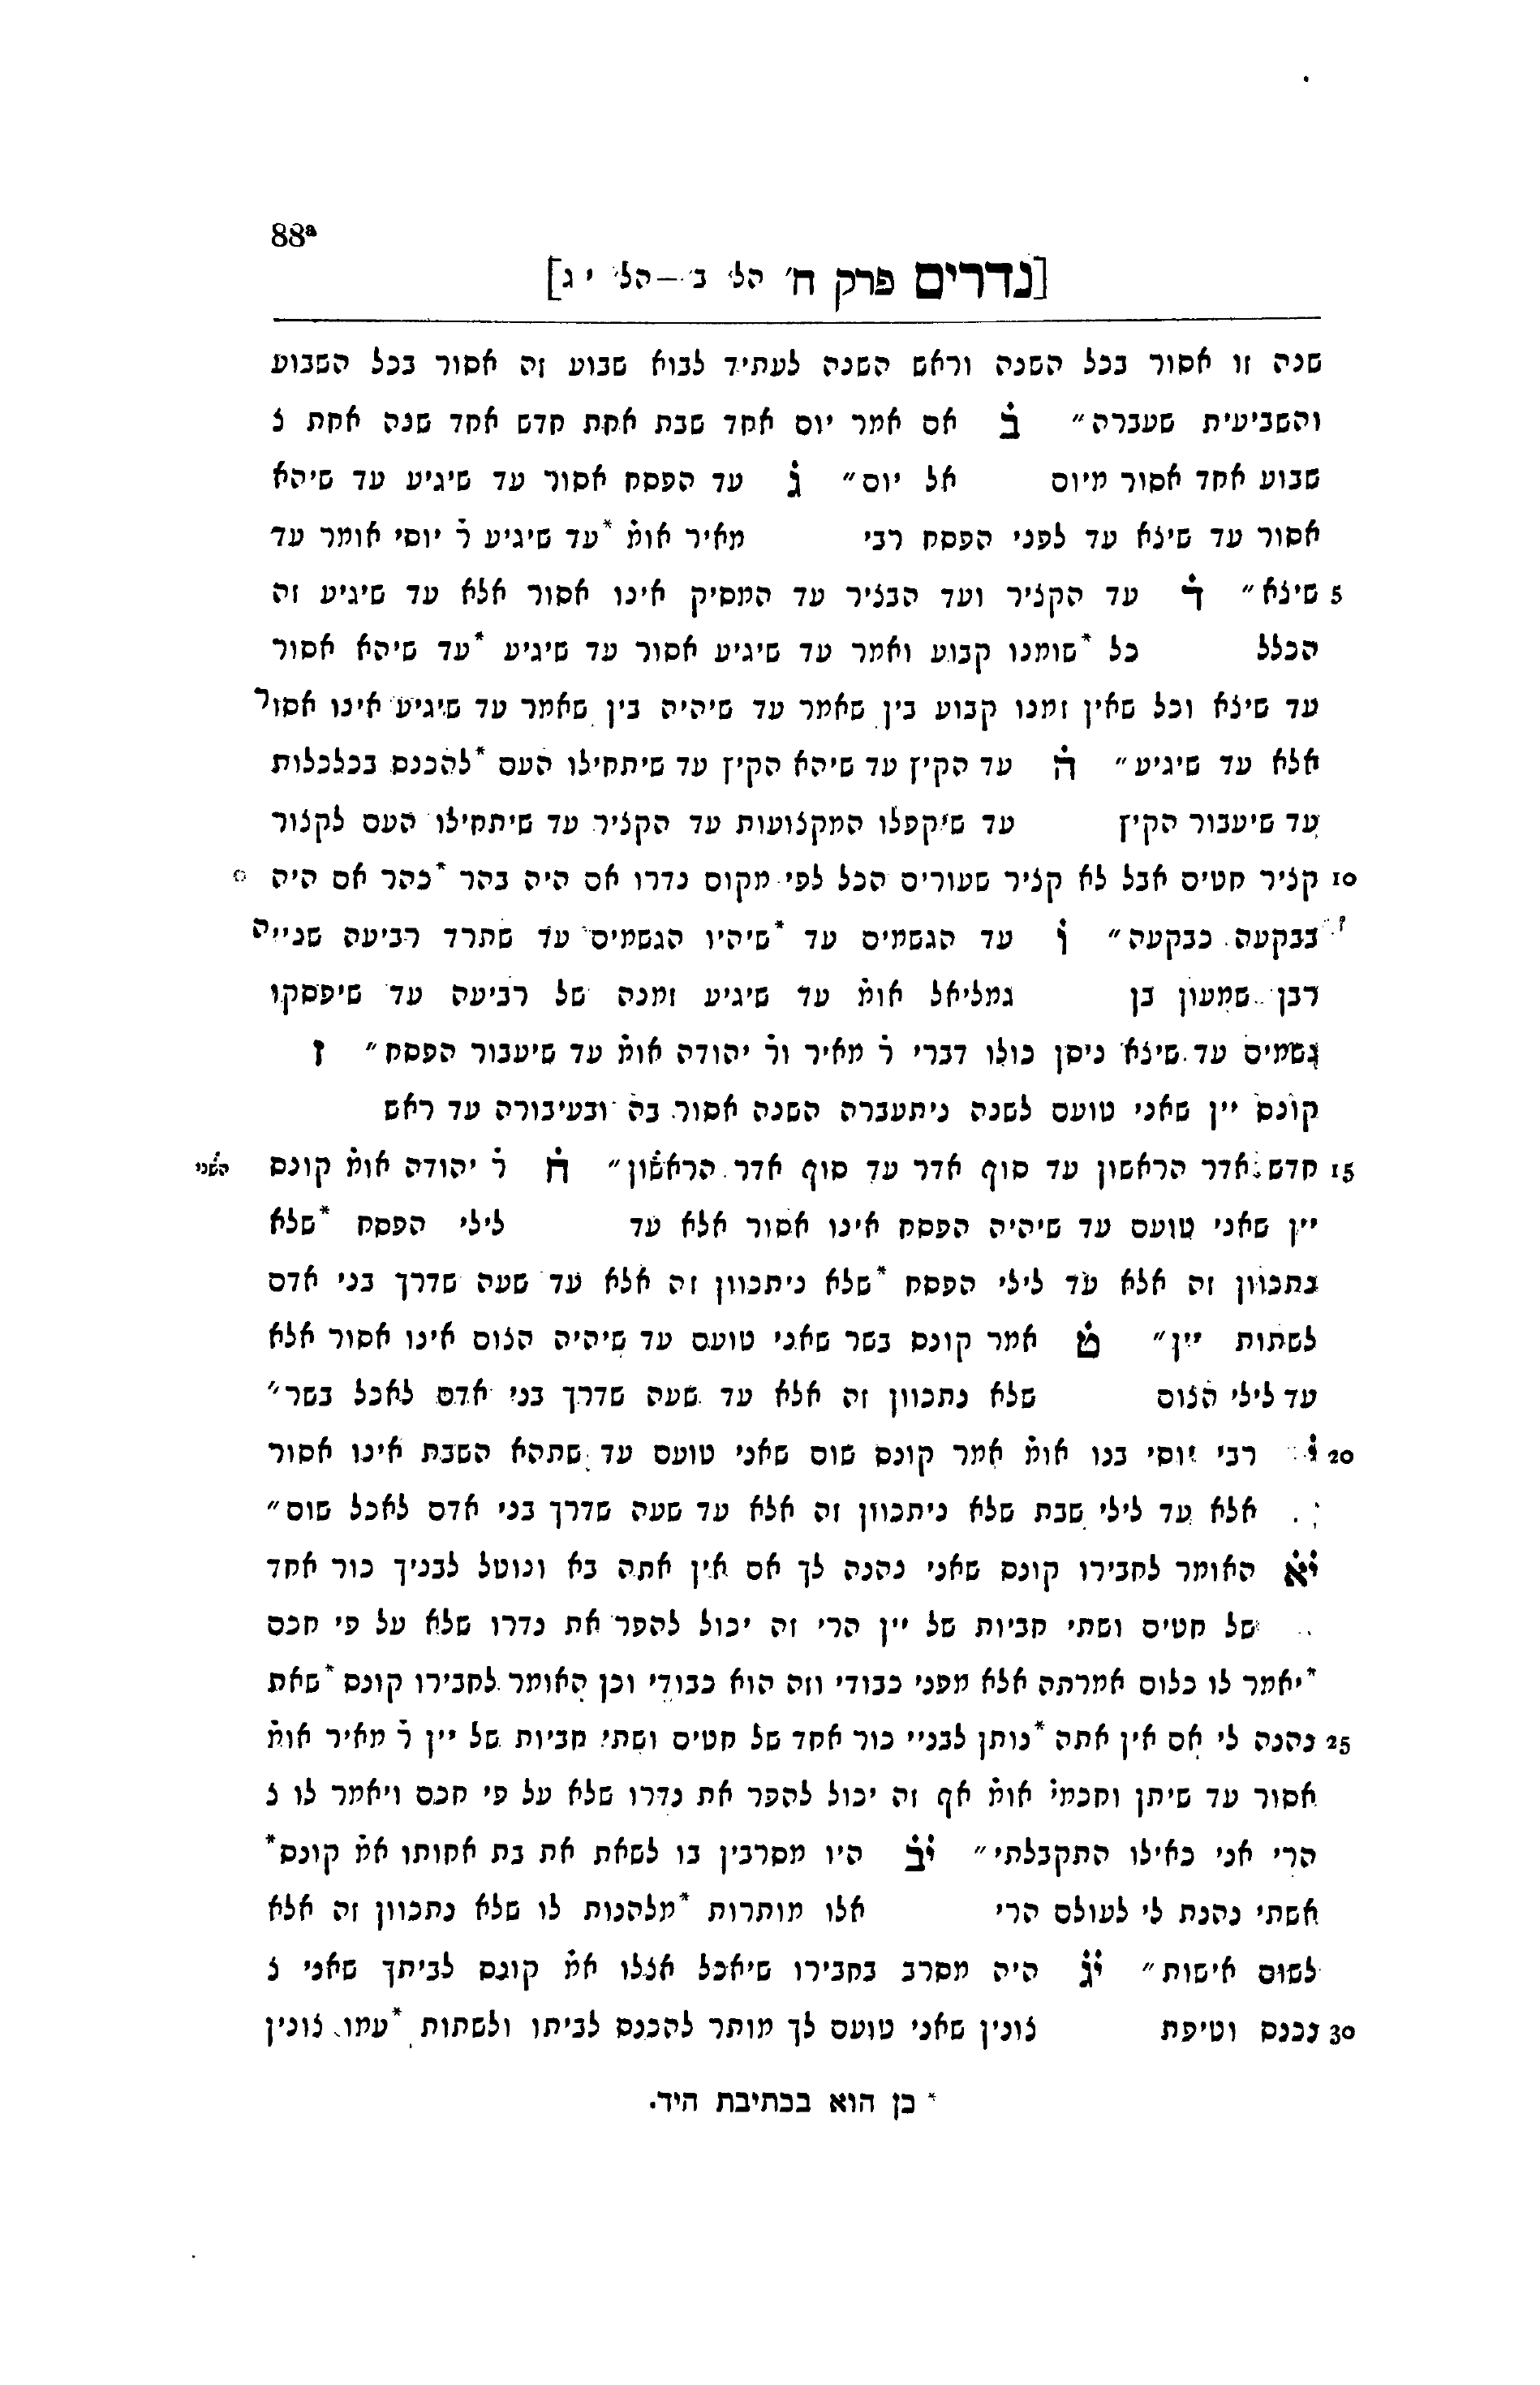 88ª
[נדרים פרק ח' הל' ב'–הל' י ג]
שנה זו אסור בכל השנה וראש השנה לעתיד לבוא שבוע זה אסור בכל השבוע
והשביעית שעברה״ ב אם אמר יום אחד שבת אחת חדש אחד שנה אחת צ
שבוע אחד אסור מיום אל יום״ ג עד הפסח אסור עד שיגיע עד שיהא
אסור עד שיצא עד לפני הפסח רבי מאיר אומ̇ *עד שיגיע ר̇ יוסי אומר עד
5 שיצא״ ד עד הקציר ועד הבציר עד המסיק אינו אסור אלא עד שיגיע זה
הכלל כל *שומנו קבוע ואמר עד שיגיע אסור עד שיגיע *עד שיהא אסור
עד שיצא וכל שאין זמנו קבוע בין שאמר עד שיהיה בין שאמר עד שיגיע אינו אסור
אלא עד שיגיע״ ה עד הקיץ עד שיהא הקיץ עד שיתחילו העם *להכנס בכלכלות
עד שיעבור הקיץ עד שיקפלו המקצועות עד הקציר עד שיתחילו העם לקצור
10 קציר חטים אבל לא קציר שעורים הכל לפי מקום נדרו אם היה בהר *כהר אם היה
בבקעה כבקעה״ ו עד הגשמים עד *שיהיו הגשמים עד שתרד רביעה שנייה
רבן שמעון בן גמליאל אומ̇ עד שיגיע זמנה של רביעה עד שיפסקו
גשמים עד שיצא ניסן כולו דברי ר̇ מאיר ור̇ יהודה אומ̇ עד שיעבור הפסח״ ז
קונס יין שאני טועם לשנה ניתעברה השנה אסור בה ובעיבורה עד ראש
15 חדש אדר הראשון עד סוף אדר עד סוף אדר הראשון״ ח ר̇ יהודה אומ̇ קונס השני
יין שאני טועם עד שיהיה הפסח אינו אסור אלא עד לילי הפסח *שלא
בתכוון זה אלא עד לילי הפסח *שלא ניתכוון זה אלא עד שעה שדרך בני אדם
לשתות יין״ ט אמר קונס בשר שאני טועם עד שיהיה הצום אינו אסור אלא
עד לילי הצום שלא נתכוון זה אלא עד שעה שדרך בני אדם לאכל בשר״
20 י רבי יוסי בנו אומ̇ אמר קונס שום שאני טועם עד שתהא השבת אינו אסור
אלא עד לילי שבת שלא ניתכוון זה אלא עד שעה שדרך בני אדם לאכל שום״
יא האומר לחבירו קונס שאני נהנה לך אם אין אתה בא ונוטל לבניך כור אחד
של חטים ושתי חביות של יין הרי זה יכול להפר את נדרו שלא על פי חכם
*יאמר לו כלום אמרתה אלא מפני כבודי וזה הוא כבודי וכן האומר לחבירו קונס *שאת
25 נהנה לי אם אין אתה *נותן לבניי כור אחד של חטים ושתי חביות של יין ר̇ מאיר אומ̇
אסור עד שיתן וחכמי̇ אומ̇ אף זה יכול להפר את נדרו שלא על פי חכם ויאמר לו צ
הרי אני כאילו התקבלתי״ יב היו מסרבין בו לשאת את בת אחותו אמ̇ קונס*
אשתי נהנת לי לעולם הרי אלו מותרות *מלהנות לו שלא נתכוון זה אלא
לשום אישות״ יג היה מסרב בחבירו שיאכל אצלו אמ̇ קונם לביתך שאני צ
30 נכנס וטיפת צונין שאני טועם לך מותר להכנס לביתו ולשתות *עמו צונין
* כן הוא בכתיבת היד.